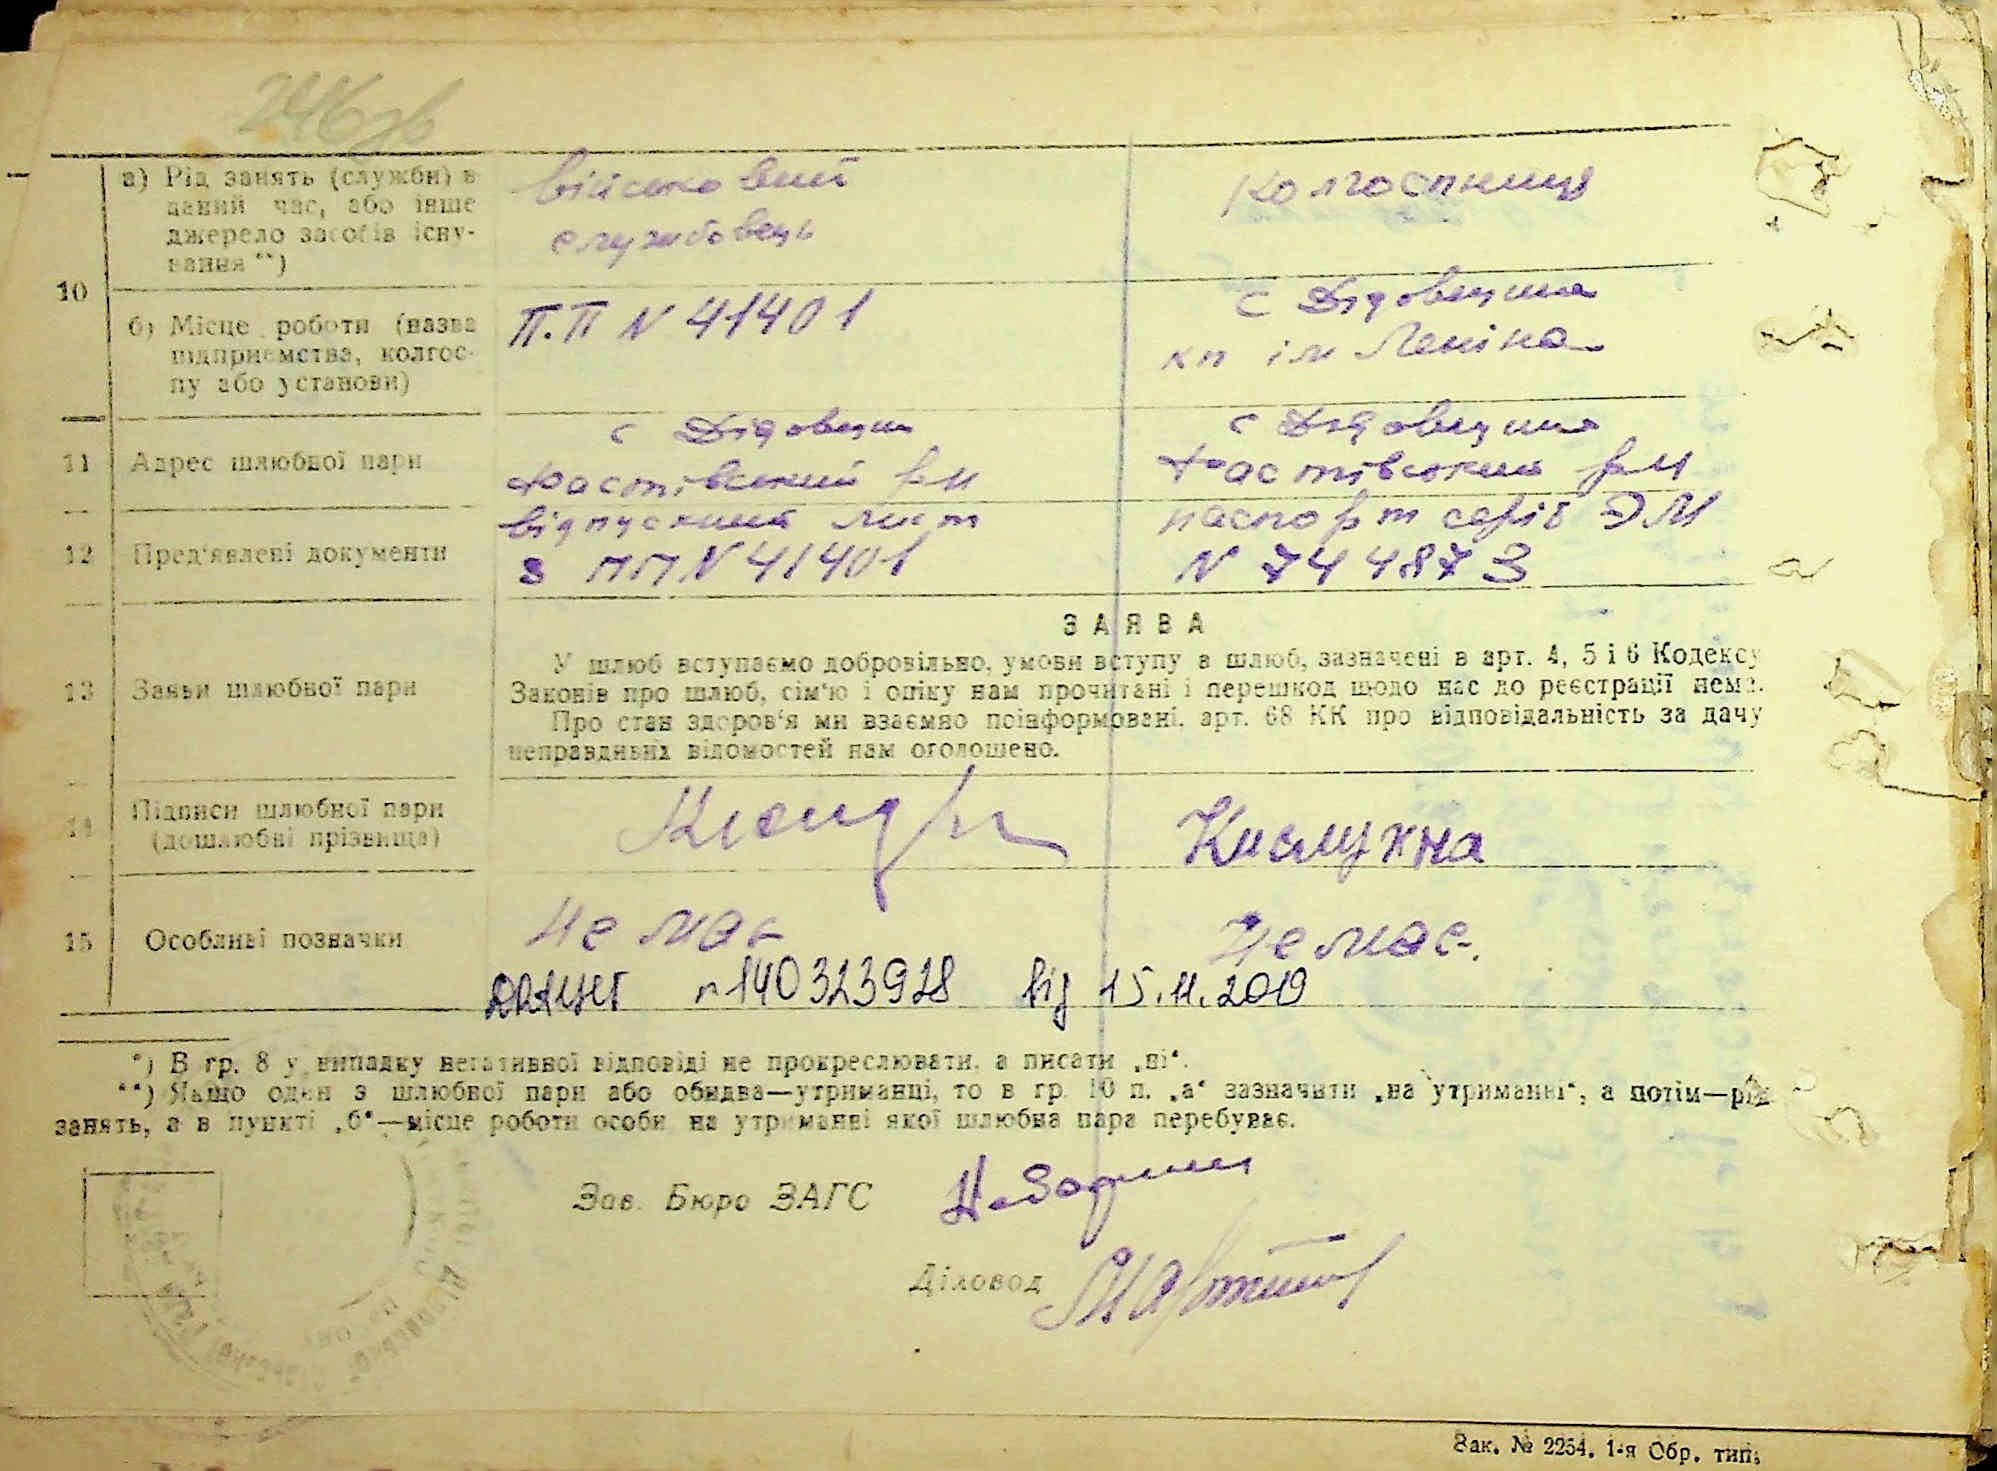 246 зв
а) Рід занять (служби) в військовий колгоспниця
даний час, або інше
джерело засобів існу- службовець
вання **)
10
б) Місце роботи (назва П.П N 41401 с Дідовщина
підприємства, колгос-
пу або установи) кп ім Леніна
с Дідовщин с Дідовщина
11 Адрес шлюбної пари
Фастівський р-н Фастівський р-н
відпускний лист паспорт серії ЭМ
12 Пред'явлені документи
з ПП N 41401 N 7444873
ЗАЯВА
У шлюб вступаємо добровільно, умови вступу в шлюб, зазначені в арт. 4, 5 і 6 Кодексу
13 Заяви шлюбної пари Законів про шлюб, сім'ю і опіку нам прочитані і перешкод щодо нас до реєстрації нема.
Про стан здоров'я ми взаємно поінформовані, арт. 68 КК про відповідальність за дачу
неправдивих відомостей нам оголошено.
14 Підписи шлюбної пари
(дошлюбні прізвища)
15 Особливі позначки Немає Немає.
ДРАЦСГ n 140323928 від 15.11.2019
*) В гр. 8 у випадку негативної відповіді не прокреслювати, а писати „ні“.
**) Якщо один з шлюбної пари або обидва—утриманці, то в гр. 10 п. „а“ зазначити „на утриманні“, а потім—рід
занять, а в пункті „б“—місце роботи особи на утриманні якої шлюбна пара перебуває.
Зав. Бюро ЗАГС
Діловод
Зак. № 2254. 1-я Обр. тип.